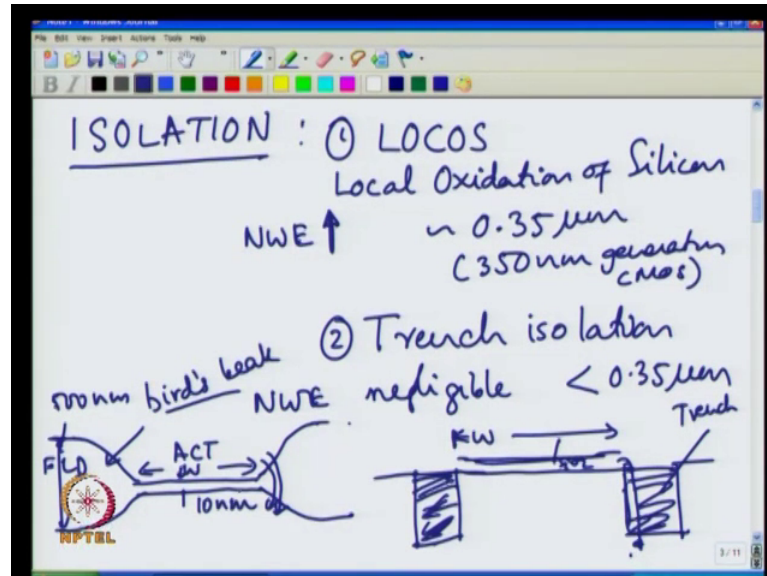 File Edit View Insert Actions Tools Help
B I
ISOLATION : ① LOCOS
Local Oxidation of Silicon
NWE ↑ ~ 0.35 μm
(350nm generation CMOS)
② Trench isolation
NWE negligible < 0.35 μm
bird's beak
Trench
FLD
ACT
W
10nm
W
NPTEL
3/11